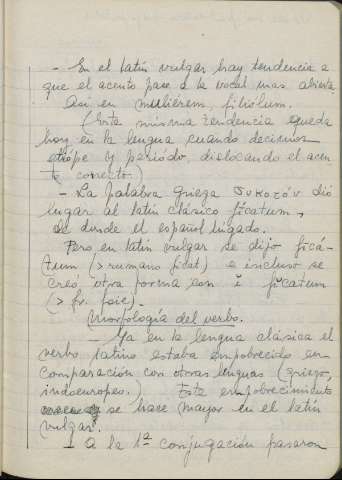 - En el latín vulgar hay tendencia a
que el acento pase a la vocal mas abierta
Así en muliérem, filiólum.
(Esta misma tendencia queda
hoy en la lengua cuando decimos
etiópe y periódo, dislocando el acen-
to correcto.)
- La palabra griega συκοτόν dió
lugar al latín clásico fícatum,
de donde el español hígado.
Pero en latín vulgar se dijo ficá-
tum (> rumano ficat) e incluso se
creó otra forma con i fícatum
(> fr. foie).
Morfología del verbo.
- Ya en la lengua clásica el
verbo latino estaba empobrecido en
comparación con otras lenguas (griego,
indoeuropeo.) Este empobrecimiento
se hace mayor en el latín
vulgar.
- a la 1ª conjugación pasaron